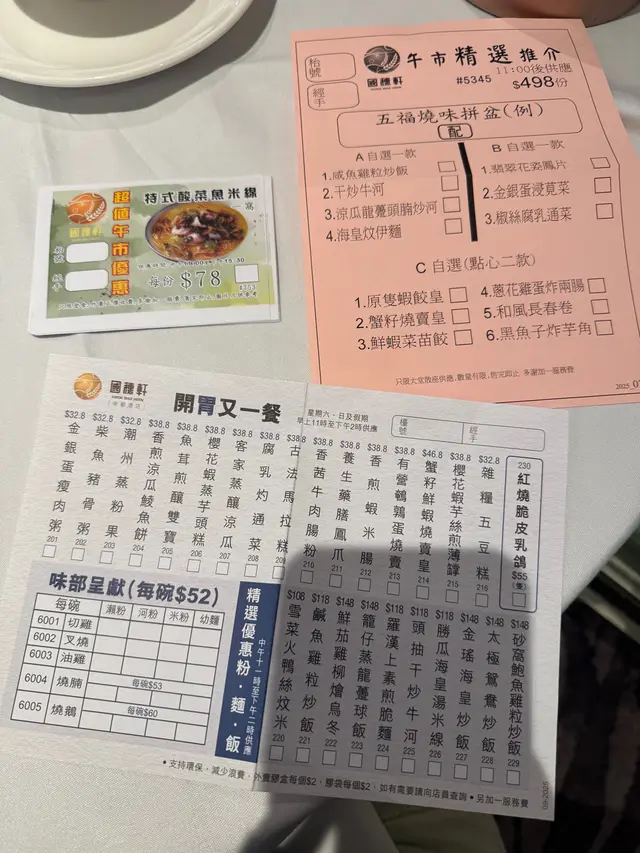 枱號
經手
國禮軒
午市精選推介
11:00後供應
#5345
$498份
五福燒味拼盆(例)
配
A 自選一款
1.咸魚雞粒炒飯
2.干炒牛河
3.涼瓜龍躉頭腩炒河
4.海皇炆伊麵
B 自選一款
1.翡翠花姿鳳片
2.金銀蛋浸莧菜
3.椒絲腐乳通菜
C 自選(點心二款)
1.原隻蝦餃皇
2.蟹籽燒賣皇
3.鮮蝦菜苗餃
4.蔥花雞蛋炸兩腸
5.和風長春卷
6.黑魚子炸芋角
只限大堂散座供應,數量有限,售完即止 多謝加一服務費
國禮軒
超值午市優惠
特式酸菜魚米線
一窩
每份 $78
枱號
經手
國禮軒
開胃又一餐
星期六、日及假期
早上11時至下午2時供應
檯號
經手
$32.8 金銀蛋瘦肉粥 201
$32.8 柴魚豬骨粥 202
$32.8 潮州蒸粉果 203
$38.8 香煎涼瓜鯪魚餅 204
$38.8 魚茸煎釀雙寶 205
$38.8 櫻花蝦蒸芋頭糕 206
$38.8 客家蒸釀涼瓜 207
$38.8 腐乳灼通菜 208
古法馬拉糕 209
$38.8 香茜牛肉腸粉 210
$38.8 養生藥膳鳳爪 211
$38.8 香煎蝦米腸 212
$38.8 有營鵪鶉蛋燒賣 213
$46.8 蟹籽鮮蝦燒賣皇 214
$38.8 櫻花蝦芋絲煎薄罉 215
$32.8 雜糧五豆糕 216
230 紅燒脆皮乳鴿 $55 (隻)
味部呈獻(每碗$52)
每碗 瀨粉 河粉 米粉 幼麵
6001 切雞
6002 叉燒
6003 油雞
每碗$53
6004 燒腩
每碗$60
6005 燒鵝
精選優惠粉·麵·飯
中午十一時至下午二時供應
$108 雪菜火鴨絲炆米 220
$118 鹹魚雞粒炒飯 221
$148 鮮茄雞柳燴烏冬 222
$148 籠仔蒸龍躉球飯 223
$118 羅漢上素煎脆麵 224
$118 頭抽干炒牛河 225
$118 勝瓜海皇湯米線 226
$148 金瑤海皇炒飯 227
$148 太極鴛鴦炒飯 228
$148 砂窩鮑魚雞粒炒飯 229
•支持環保,減少浪費,外賣膠盒每個$2,膠袋每個$2,如有需要請向店員查詢 •另加一服務費